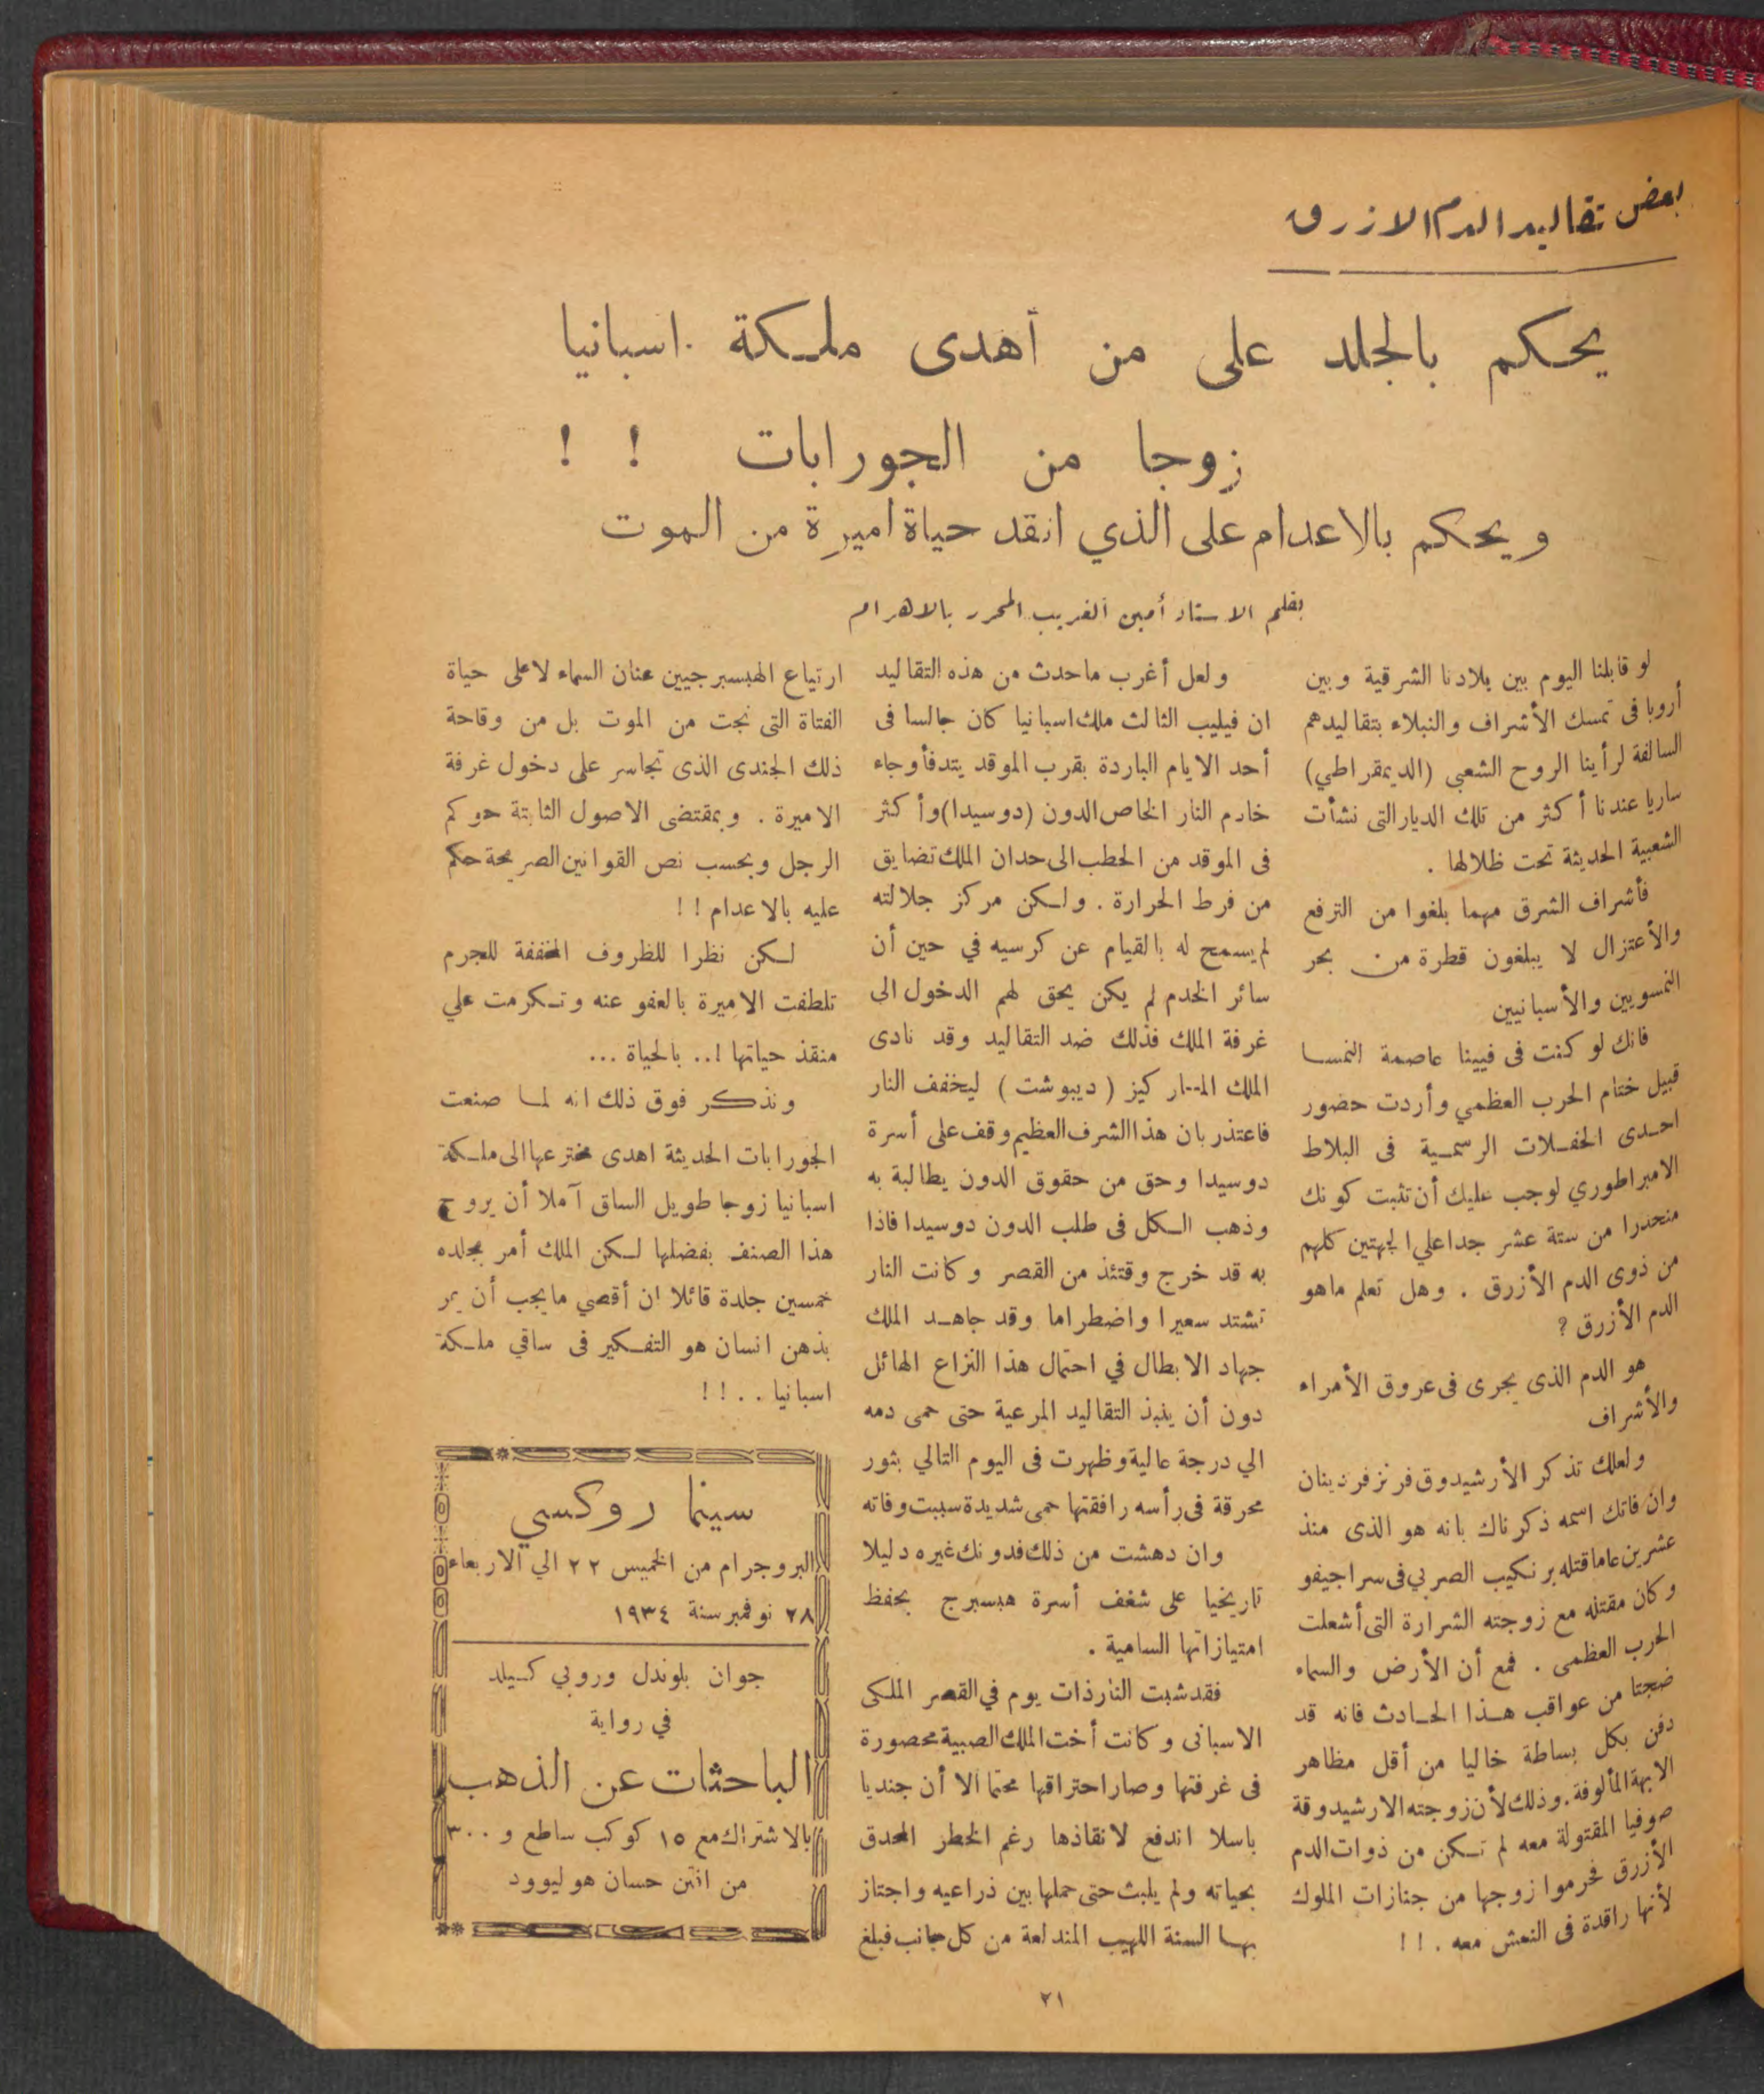 بعض تقاليد الدم الازرق
يحكم بالجلد على من أهدى ملكة اسبانيا
زوجا من الجورابات ! !
ويحكم بالاعدام على الذي انقد حياة اميرة من الموت
بقلم الاستاذ أمين الغريب المحرر بالاهرام
لو قابلنا اليوم بين بلادنا الشرقية وبين
أروبا فى تمسك الأشراف والنبلاء بتقاليدهم
السالفة لرأينا الروح الشعبي (الديمقراطي)
ساريا عندنا أكثر من تلك الديار التى نشأت
الشعبية الحديثة تحت ظلالها .
فأشراف الشرق مهما بلغوا من الترفع
والأعتزال لا يبلغون قطرة من بحر
النمسويين والأسبانيين
فانك لو كنت فى فيينا عاصمة النمسا
قبيل ختام الحرب العظمي وأردت حضور
احدى الحفلات الرسمية فى البلاط
الامبراطوري لوجب عليك أن تثبت كونك
منحدرا من ستة عشر جدا علي الجهتين كلهم
من ذوى الدم الأزرق . وهل تعلم ماهو
الدم الأزرق ?
هو الدم الذى يجرى فى عروق الأمراء
والأشراف
ولعلك تذكر الأرشيدوق فرنز فردينان
وان فاتك اسمه ذكرناك بانه هو الذى منذ
عشرين عاما قتله برنكيب الصربي فى سراجيفو
وكان مقتله مع زوجته الشرارة التى أشعلت
الحرب العظمى . فمع أن الأرض والسماء
ضجتا من عواقب هذا الحادث فانه قد
دفن بكل بساطة خاليا من أقل مظاهر
الابهة المألوفة. وذلك لأن زوجته الارشيدوقة
صوفيا المقتولة معه لم تكن من ذوات الدم
الأزرق فحرموا زوجها من جنازات الملوك
لأنها راقدة فى النعش معه . ! !
ولعل أغرب ماحدث من هذه التقاليد
ان فيليب الثالث ملك اسبانيا كان جالسا فى
أحد الايام الباردة بقرب الموقد يتدفأ وجاء
خادم النار الخاص الدون (دوسيدا) وأكثر
فى الموقد من الحطب الى حدان الملك تضايق
من فرط الحرارة . ولكن مركز جلالته
لم يسمح له بالقيام عن كرسيه في حين أن
سائر الخدم لم يكن يحق لهم الدخول الى
غرفة الملك فذلك ضد التقاليد وقد نادى
الملك الماركيز ( ديبوشت ) ليخفف النار
فاعتذر بان هذا الشرف العظيم وقف على أسرة
دوسيدا وحق من حقوق الدون يطالبة به
وذهب الكل فى طلب الدون دوسيدا فاذا
به قد خرج وقتئذ من القصر وكانت النار
تشتد سعيرا واضطراما وقد جاهد الملك
جهاد الابطال في احتمال هذا النزاع الهائل
دون أن ينبذ التقاليد المرعية حتى حمى دمه
الي درجة عالية وظهرت فى اليوم التالي بثور
محرقة فى رأسه رافقتها حمى شديدة سببت وفاته
وان دهشت من ذلك فدونك غيره دليلا
تاريخيا على شغف أسرة هبسبرج بحفظ
امتيازاتها السامية .
فقد شبت النار ذات يوم في القصر الملكى
الاسبانى وكانت أخت الملك الصبية محصورة
فى غرفتها وصار احتراقها محتما الا أن جنديا
باسلا اندفع لانقاذها رغم الخطر المحدق
بحياته ولم يلبث حتى حملها بين ذراعيه واجتاز
بها السنة اللهيب المندلعة من كل جانب فبلغ
ارتياع الهبسبرجيين عنان السماء لاعلى حياة
الفتاة التى نجت من الموت بل من وقاحة
ذلك الجندى الذى تجاسر على دخول غرفة
الاميرة . وبمقتضى الاصول الثابتة حوكم
الرجل وبحسب نص القوانين الصريحة حكم
عليه بالاعدام ! !
لكن نظرا للظروف المخففة للجرم
تلطفت الاميرة بالعفو عنه وتكرمت علي
منقذ حياتها !.. بالحياة ...
ونذكر فوق ذلك انه لما صنعت
الجورابات الحديثة اهدى مخترعها الى ملكة
اسبانيا زوجا طويل الساق آملا أن يروج
هذا الصنف بفضلها لكن الملك أمر بجلده
خمسين جلدة قائلا ان أقصي مايجب أن يمر
بذهن انسان هو التفكير فى ساقي ملكة
اسبانيا . . ! !
سينما روكسي
البروجرام من الخميس ٢٢ الي الاربعاء
٢٨ نوفمبر سنة ١٩٣٤
جوان بلوندل وروبي كيلد
في رواية
الباحثات عن الذهب
بالاشتراك مع ١٥ كوكب ساطع و ٣٠٠
من افتن حسان هوليوود
٢١